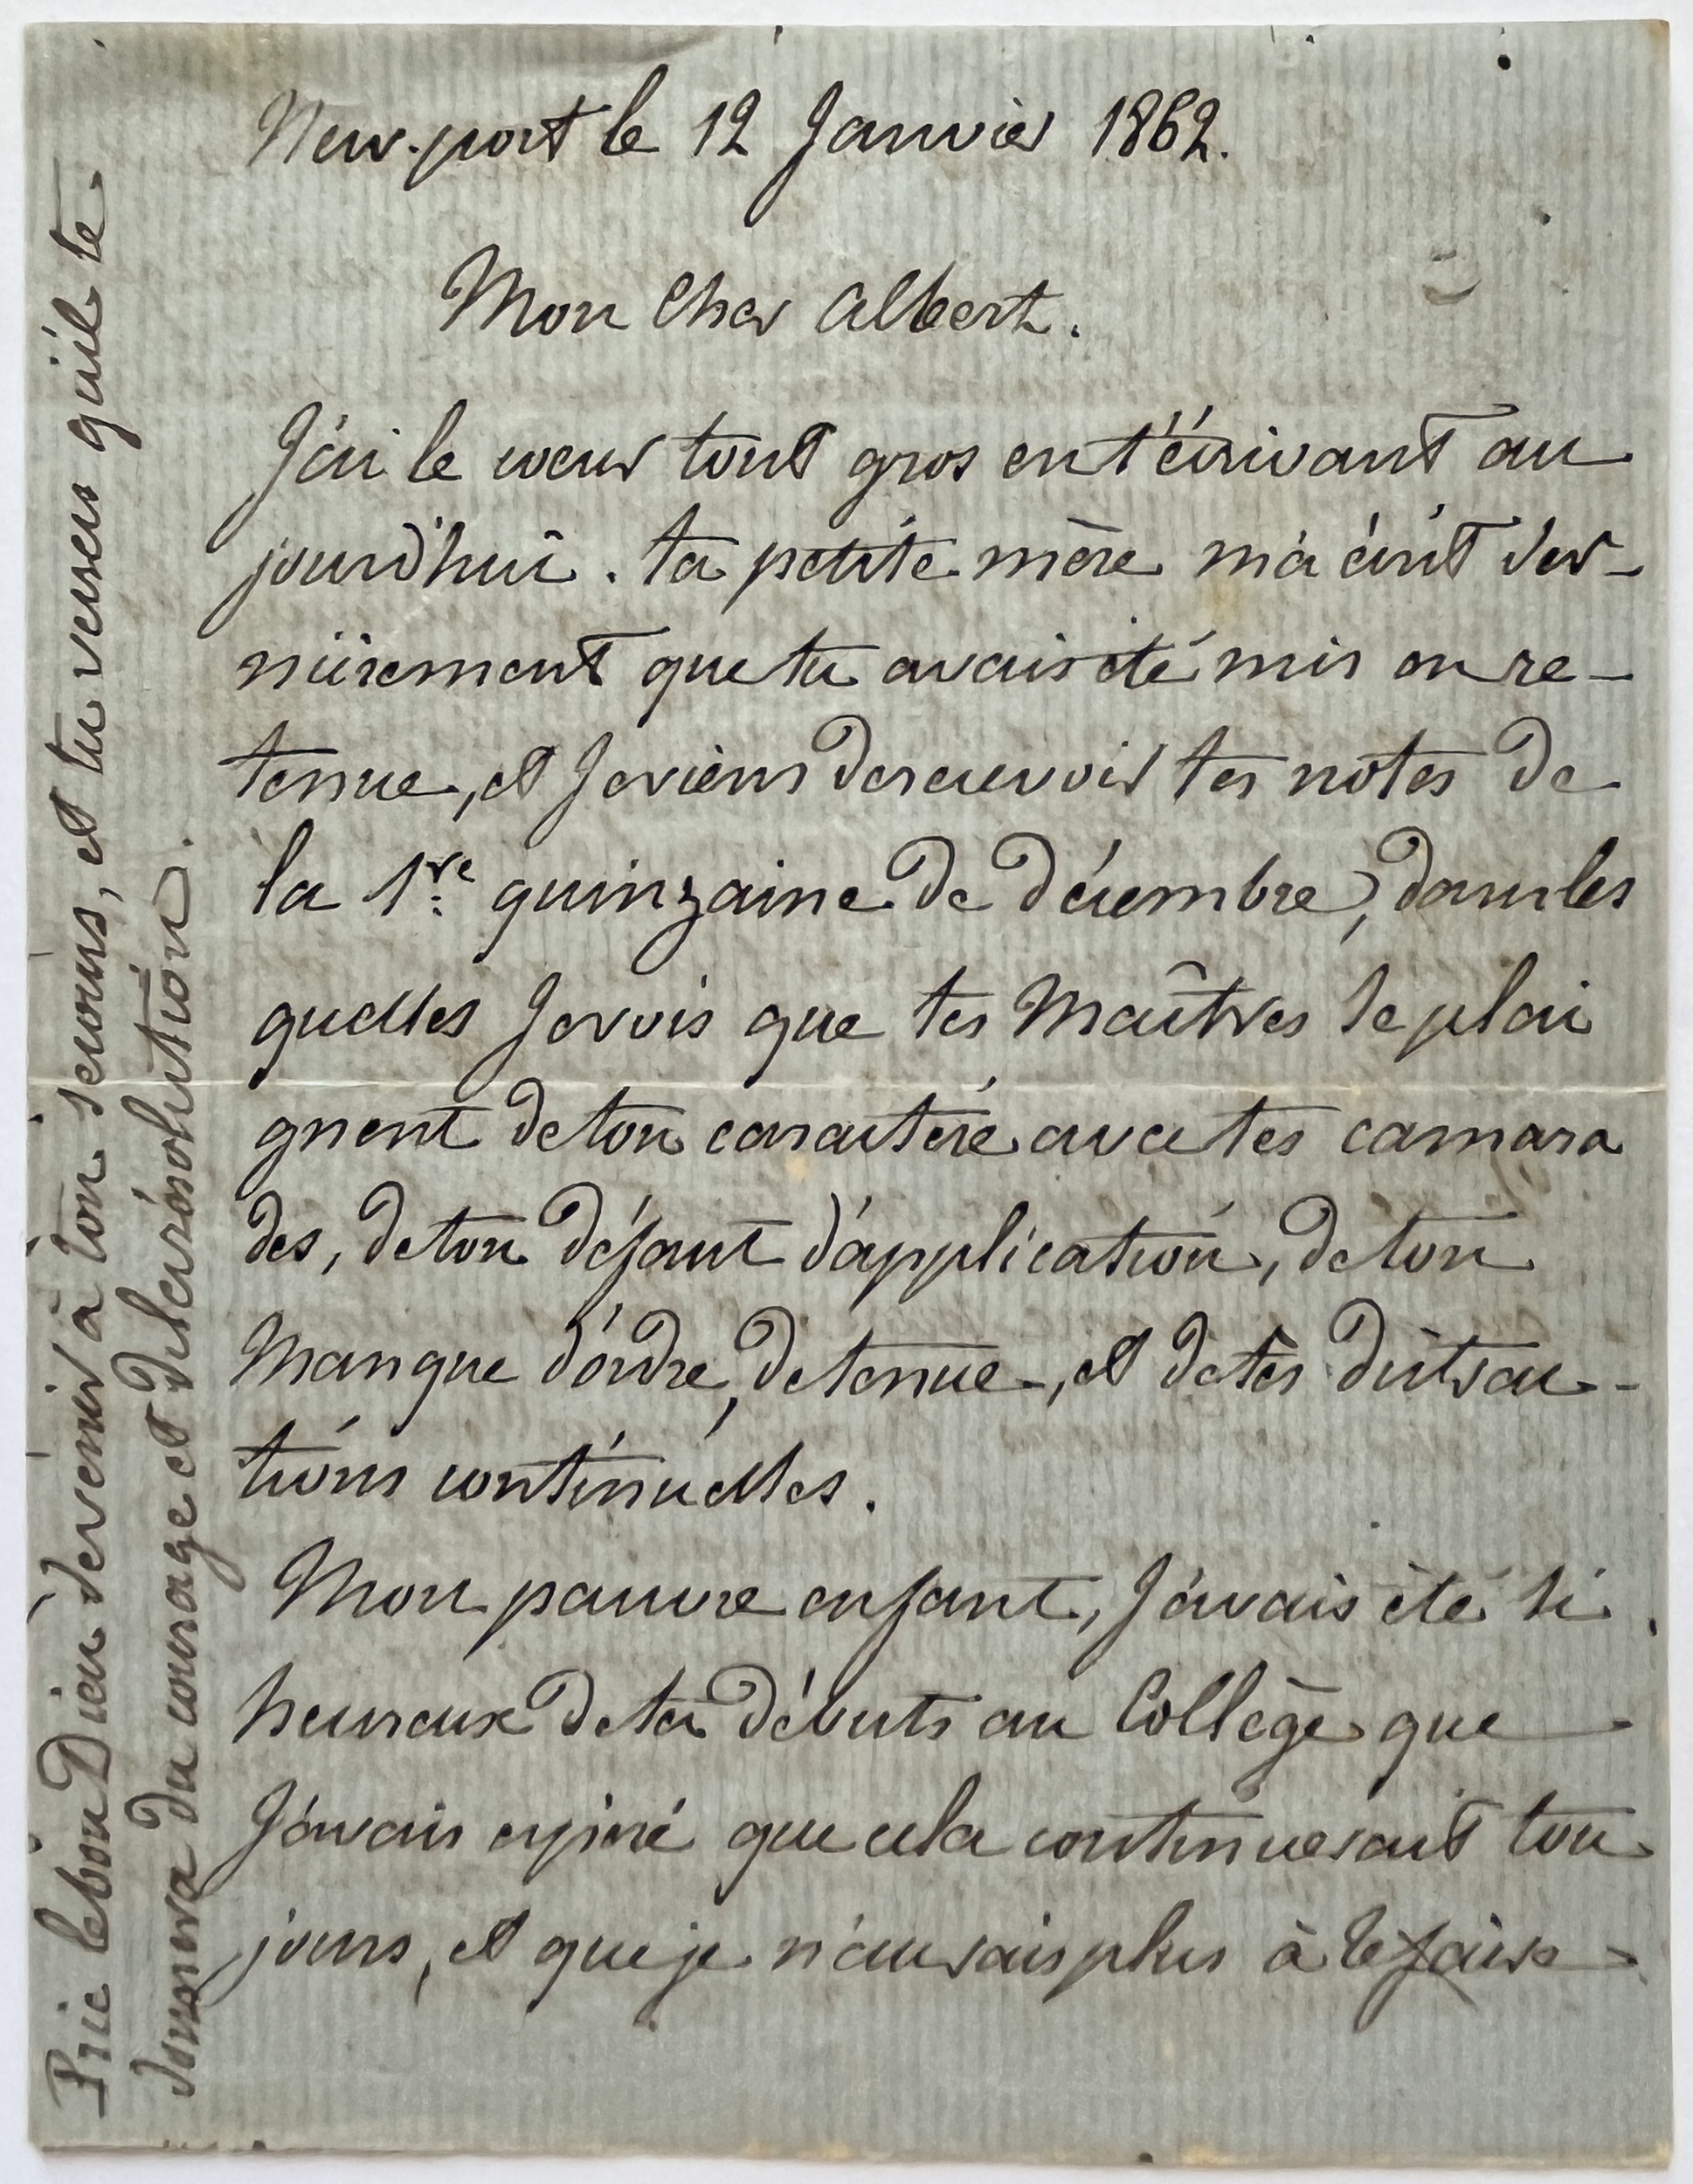 New-port le 12 Janvier 1862.
Mon Cher Albert.
J'ai le coeur tout gros en t'écrivant au
jourd'hui. ta petite mère m'a écrit der-
nièrement que tu avais été mis en re-
tenue, et Je viens de recevoir tes notes de
la 1re quinzaine de décembre, dans les
quelles Je vois que tes Maîtres se plai
gnent de ton caractère avec tes camara
des, de ton défaut d'application, de ton
Manque d'ordre, de tenue, et de tes distrac-
tions continuelles.
Mon pauvre enfant, J'avais été si
heureux de tes débuts au Collège que
J'avais espéré que cela continuerait tou
jours, et que je n'aurais plus à te faire
Prie le bon Dieu de venir à ton secours, et tu verras qu'il te
donnera du courage et de la résolution.